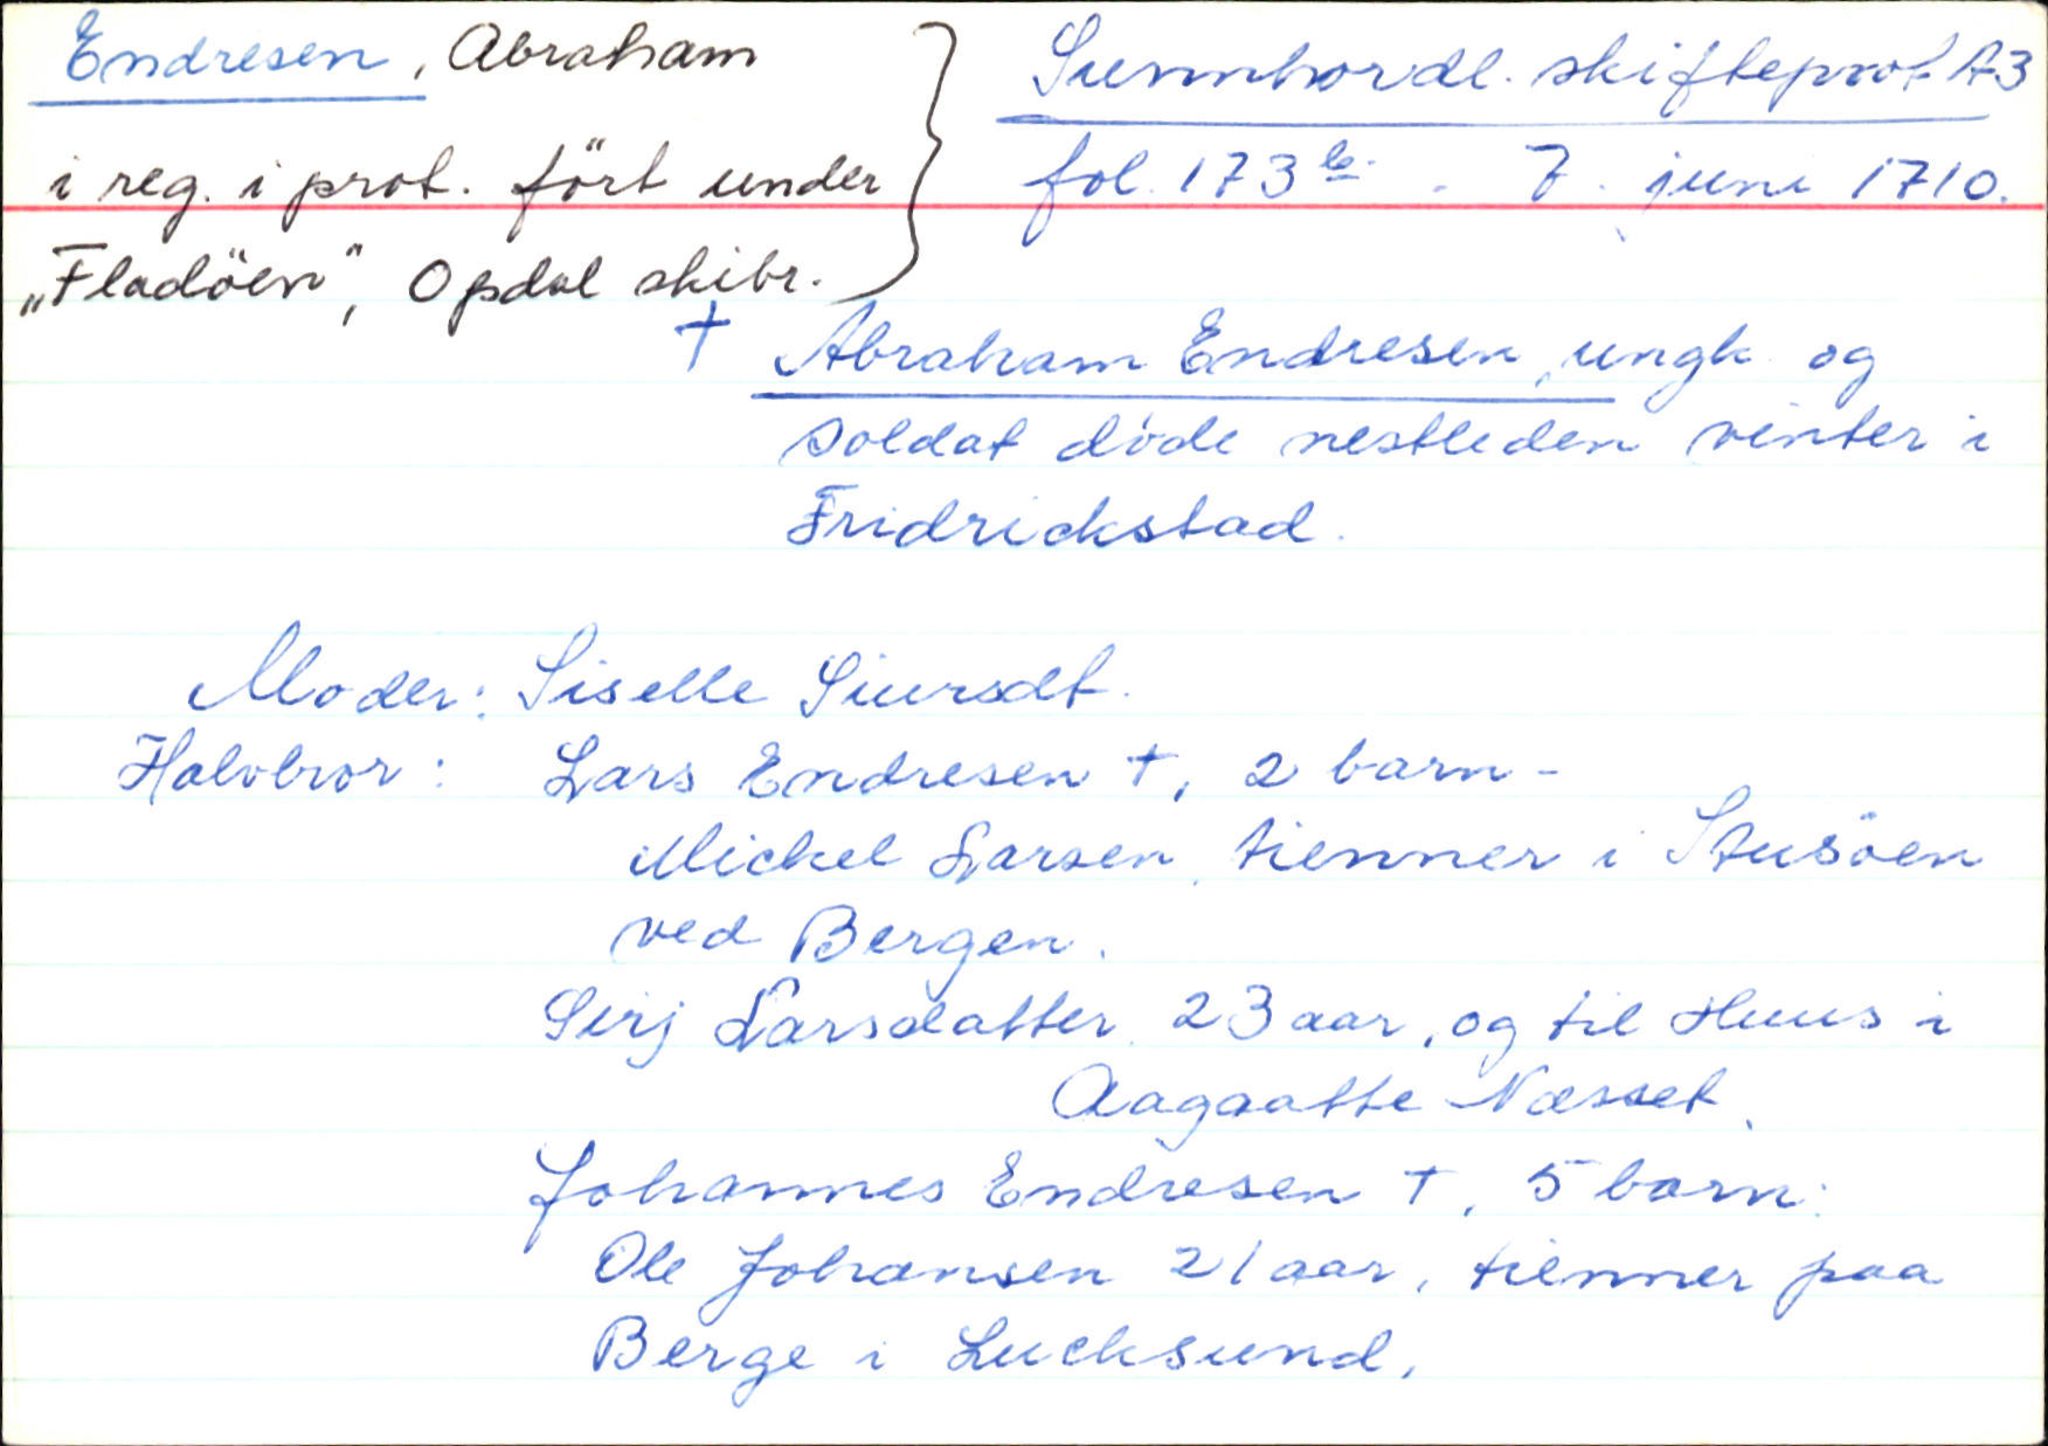 Endresen, Abraham
i reg. i prot. ført under
„Fladöen", Opdal skibr.
Sunnhordl. skifteprot A3
fol. 173 b. 7. juni 1710.
† Abraham Endresen, ungk. og
soldat døde nestleden vinter i
Fridrickstad.
Moder: Siselle Siursdt.
Halvbror: Lars Endresen †, 2 barn -
Mickel Larsen, tienner i Stusöen
ved Bergen.
Sirj Larsdatter 23 aar, og til Huus i
Aagaatte Næsset.
Johannes Endresen †, 5 barn:
Ole Johansen 21 aar, tienner paa
Berge i Lucksund,